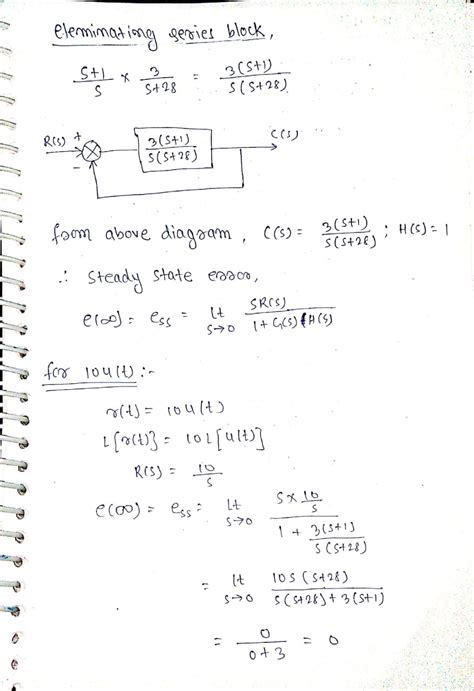 eleminationg series block,
S+1/S × 3/S+28 = 3(S+1)/S(S+28)
R(s) + - 3(S+1)/S(S+28) C(s)
from above diagram, C(s) = 3(S+1)/S(S+28) ; H(s) = 1
∴ Steady state error,
e(∞) = ess = lt S→0 SR(S)/1 + G(S) H(S)
for 10u(t) :-
r(t) = 10u(t)
L[r(t)} = 10L[u(t)]
R(S) = 10/S
e(∞) = ess = lt S→0 S × 10/S / 1 + 3(S+1)/S(S+28)
= lt S→0 10S(S+28)/S(S+28) + 3(S+1)
= 0/0+3 = 0